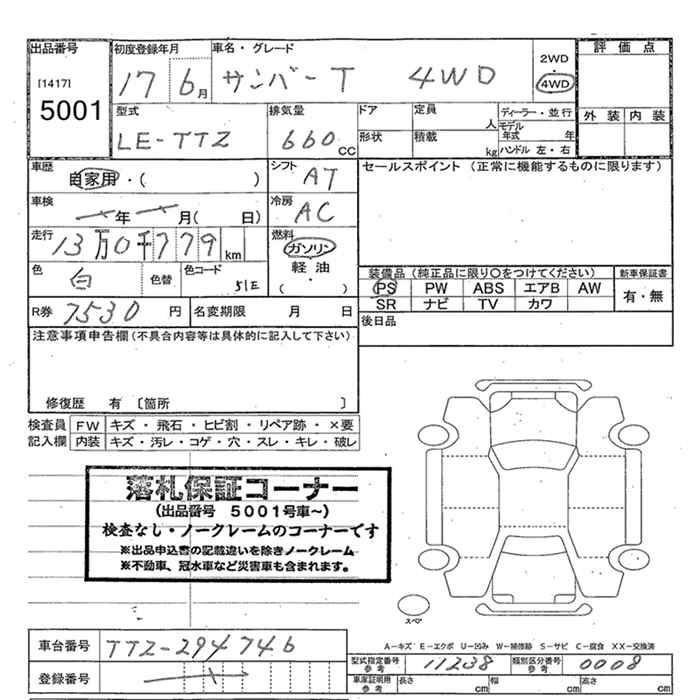 出品番号 初度登録年月 車名・グレード 2WD・4WD 評価点
[1417] 5001 17 6月 サンバーT 4WD
型式 排気量 ドア 定員 人 ディーラー・並行 外装 内装
LE-TTZ 660CC 形状 積載 kg モデル年式 年 ハンドル 左・右
車歴 自家用・( ) シフト AT セールスポイント (正常に機能するものに限ります)
車検 年 月( 日) 冷房 AC
走行 13万0千779km 燃料 ガソリン
軽油・( )
色 白 色替 色コード 51E
装備品(純正品に限り○をつけてください) 新車保証書
PS PW ABS エアB AW 有・無
SR ナビ TV カワ
R券 7530円 名変期限 月 日 後日品
注意事項申告欄(不具合内容等は具体的に記入して下さい)
修復歴 有 〔箇所 〕
検査員 FW キズ・飛石・ヒビ割・リペア跡・×要
記入欄 内装 キズ・汚レ・コゲ・穴・スレ・キレ・破レ
落札保証コーナー
(出品番号 5001号車~)
検査なし・ノークレームのコーナーです
※出品申込書の記載違いを除きノークレーム
※不動車、冠水車など災害車も含まれます。
スペア
車台番号 TTZ-294746
A-キズ E-エクボ U-凹み W-補修跡 S-サビ C-腐食 XX-交換済
型式指定番号 参考 11238 類別区分番号 参考 0008
登録番号
車庫証明用 参考 長さ cm 幅 cm 高さ cm